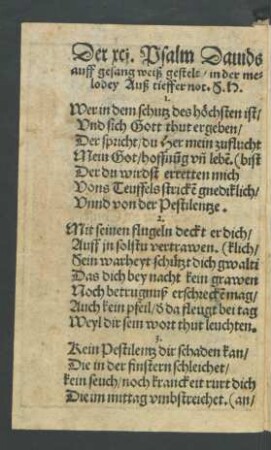 Der xcj. Psalm Dauids
auff gesang weiß gestelt / in der me-
lodey Auß tieffer not. S. H.
1.
Wer in dem schutz des höchsten ist /
Vnd sich Gott thut ergeben /
Der spricht / du Her mein zuflucht
Mein Got / hoffnũg vñ lebẽ. (bist
Der du wirdst erretten mich
Vons Teuffels strickẽ gnediklich /
Vnnd von der Pestilentze.
2.
Mit seinen flugeln deckt er dich /
Auff jn solstu vertrawen. (klich /
Sein warheyt schützt dich gwalti
Das dich bey nacht kein grawen
Noch betrugnuß erschreckẽ mag /
Auch kein pfeil / d̕ da fleugt bei tag
Weyl dir sein wort thut leuchten.
3.
Kein Pestilentz dir schaden kan /
Die in der finstern schleichet /
kein seuch / noch kranckeit rurt dich
Die im mittag vmbstreichet. (an /